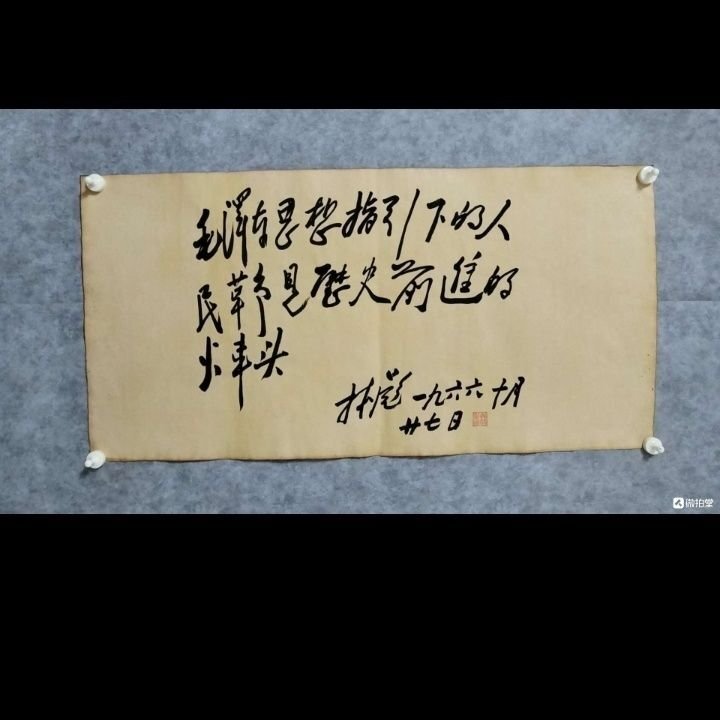 毛澤东思想指引下的人
民革命是歷史前進的
火車头
林彪 一九六六 十月
廿七日
微拍堂